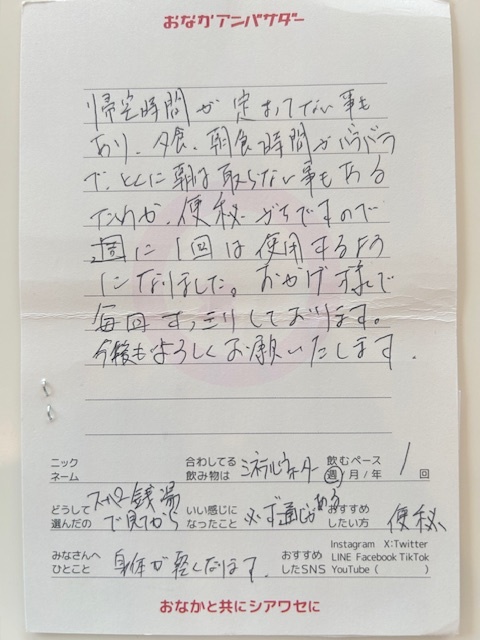 おなかアンバサダー
帰宅時間が定まってない事も
あり、夕食、朝食時間がバラバラ
で、とくに朝は取らない事もある
ためか、便秘がちですので
週に1回は使用するよう
になりました。おかげ様で
毎回すっきりしております。
今後もよろしくお願いいたします。
ニックネーム
合わしてる飲み物は ミネラルウォーター
飲むペース 週/月/年 1回
どうして選んだの スーパー銭湯で見てから
いい感じになったこと 必ず通じがある
おすすめしたい方 便秘
みなさんへひとこと 身体が軽くなります。
おすすめしたSNS Instagram X:Twitter LINE Facebook TikTok YouTube ( )
おなかと共にシアワセに